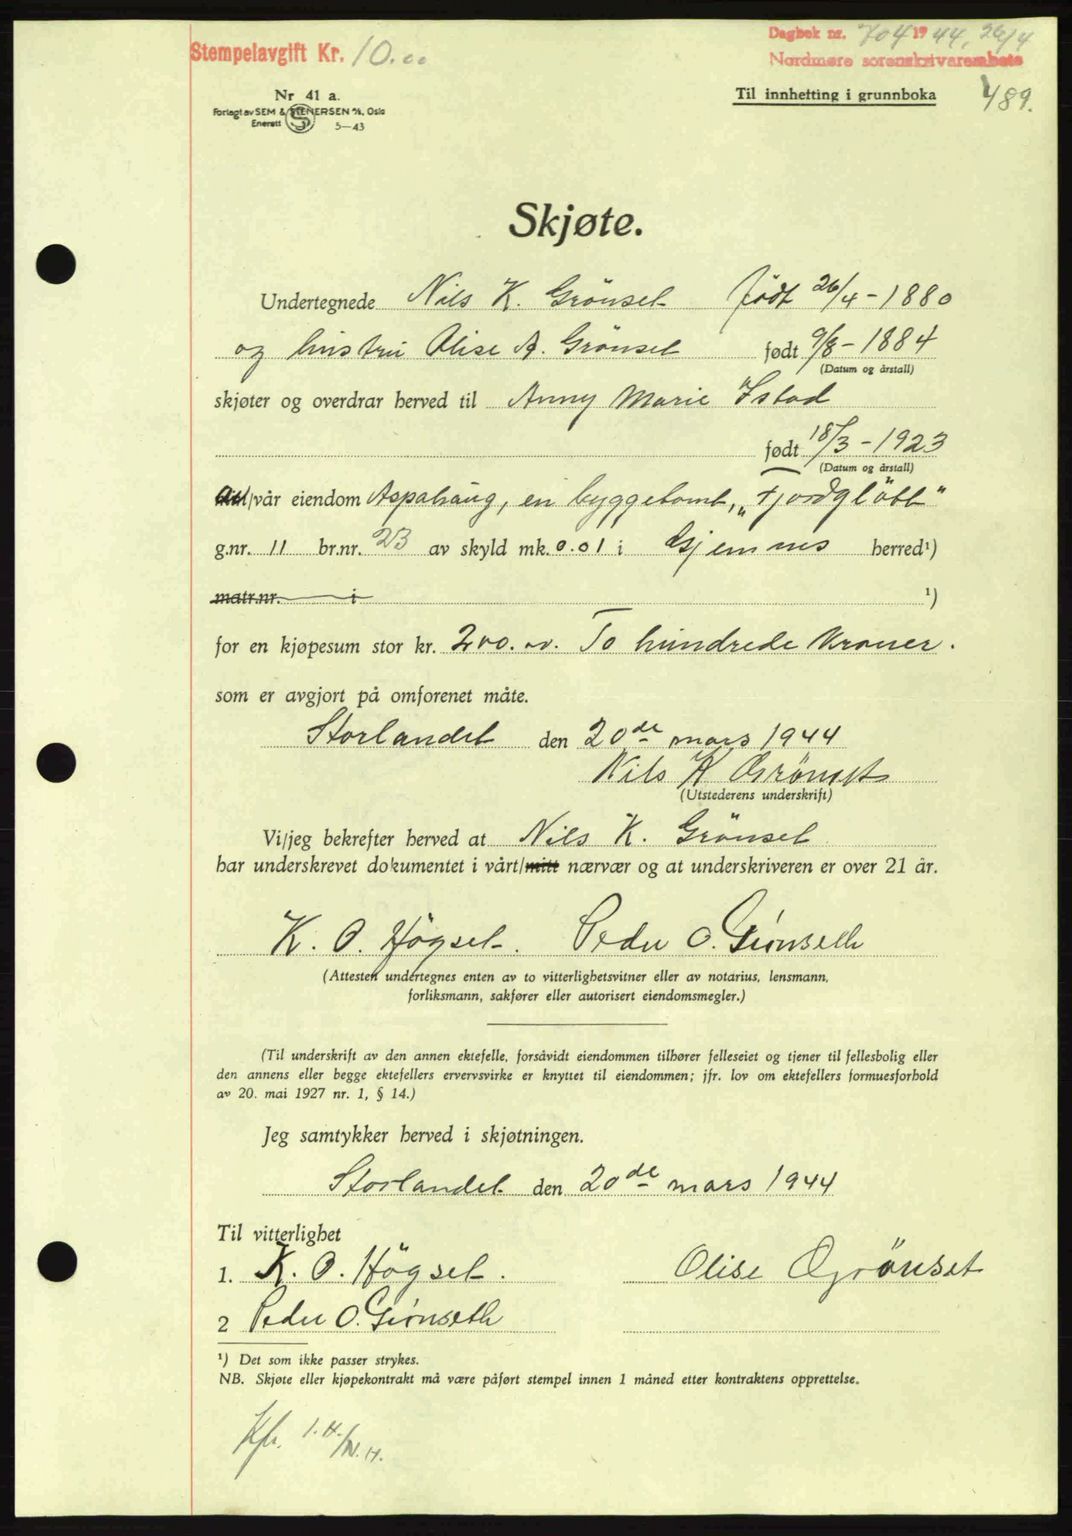 Stempelavgift Kr. 10.00
Dagbok nr. 704 1944, 26/4
Nordmøre sorenskrivarembete
Nr 41 a.
Forlagt av SEM & STENERSEN A/S, Oslo
Enerett 5—43
Til innhefting i grunnboka
489.
Skjøte.
Undertegnede Nils K. Grönset født 26/4 - 1880
og hustru Olise A. Grönset født 9/8 - 1884
(Datum og årstall)
skjøter og overdrar herved til Anny Marie Istad
født 18/3 - 1923
(Datum og årstall)
/vår eiendom Aspahaug, en byggetomt, „Fjordglött"
g.nr. 11 br.nr. 23 av skyld mk. 0.01 i Gjemnes herred¹)
matr.nr. i ¹)
for en kjøpesum stor kr. 200.00. To hundrede Kroner.
som er avgjort på omforenet måte.
Storlandet den 20de mars 1944
Nils K Grönset
(Utstederens underskrift)
Vi/jeg bekrefter herved at Nils K. Grönset
har underskrevet dokumentet i vårt/mitt nærvær og at underskriveren er over 21 år.
K. O. Högset. Peder O. Grönseth
(Attesten undertegnes enten av to vitterlighetsvitner eller av notarius, lensmann,
forliksmann, sakfører eller autorisert eiendomsmegler.)
(Til underskrift av den annen ektefelle, forsåvidt eiendommen tilhører felleseiet og tjener til fellesbolig eller
den annens eller begge ektefellers ervervsvirke er knyttet til eiendommen; jfr. lov om ektefellers formuesforhold
av 20. mai 1927 nr. 1, § 14.)
Jeg samtykker herved i skjøtningen.
Storlandet den 20de mars 1944
Til vitterlighet
1. K. O. Högset. Olise Grönset
2 Peder O. Grönseth
¹) Det som ikke passer strykes.
NB. Skjøte eller kjøpekontrakt må være påført stempel innen 1 måned etter kontraktens opprettelse.